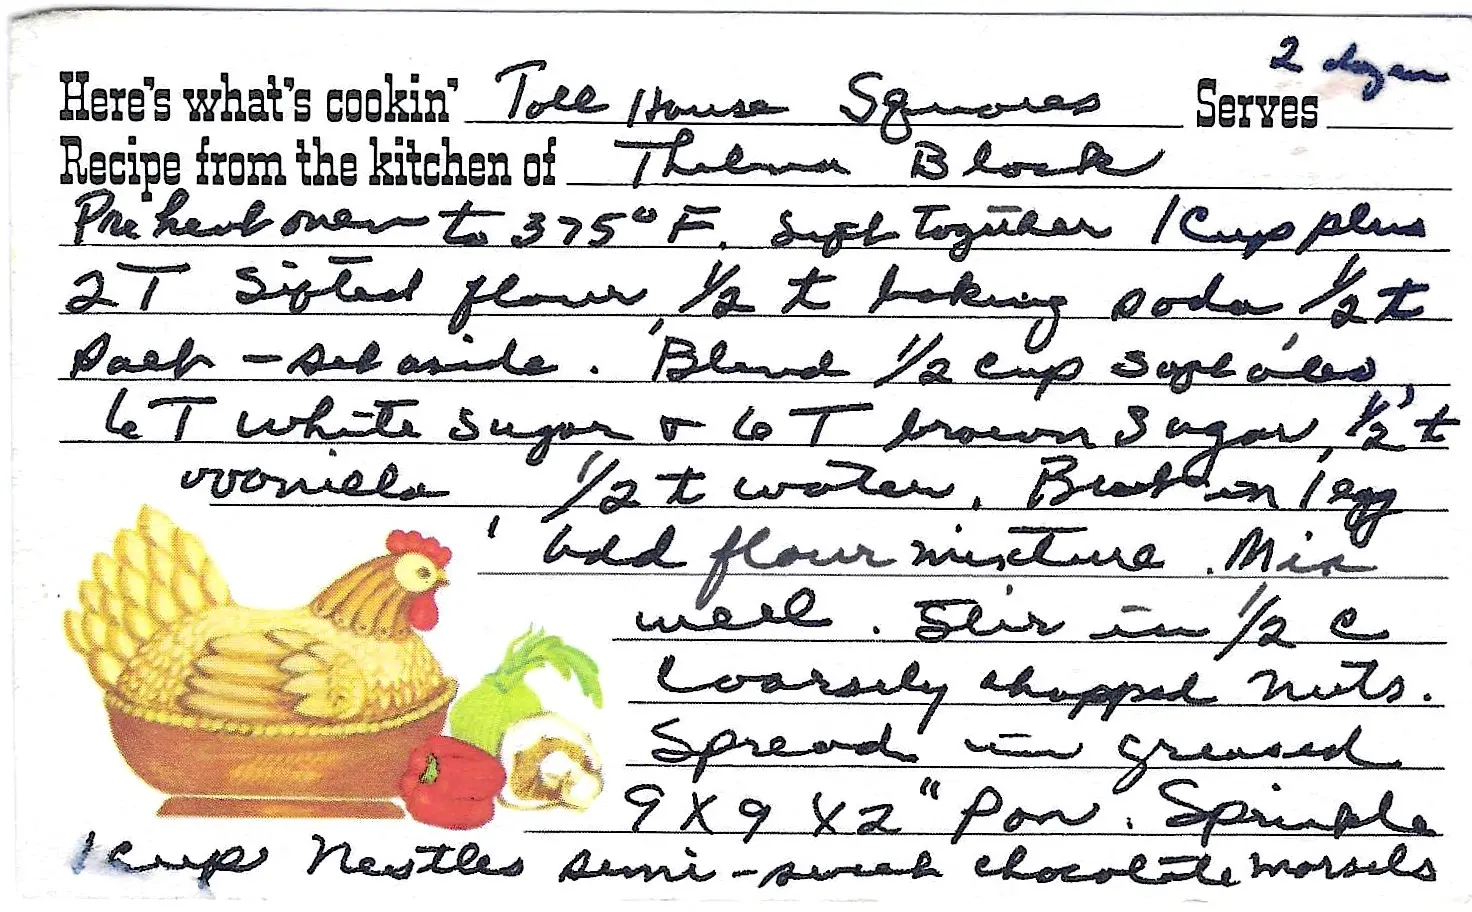 2 dozen
Here's what's cookin' Toll House Squares Serves
Recipe from the kitchen of Thelma Block
Preheat oven to 375° F. Sift together 1 cup plus
2 T sifted flour, 1/2 t baking soda 1/2 t
salt - set aside. Blend 1/2 cup soft oleo,
6 T white sugar & 6 T brown sugar, 1/2 t
vanilla, 1/2 t water. Beat in 1 egg
Add flour mixture. Mix
well. Stir in 1/2 c
coarsely chopped nuts.
Spread in greased
9 X 9 X 2" pan. Sprinkle
1 cup Nestles semi-sweet chocolate morsels